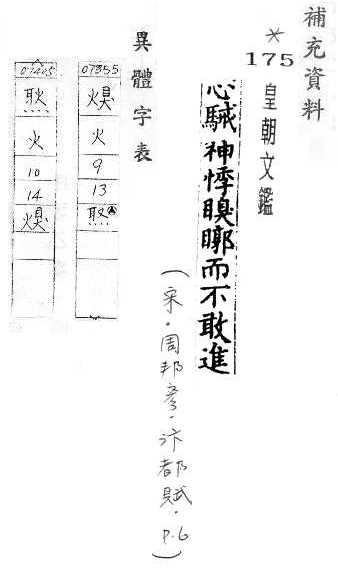 補充資料
*
175
皇朝文鑑
心駴神悸瞁而不敢進
(宋.周邦彥.汴都賦.P.6)
異體字表
07355
火
9
13
07405
火
10
14